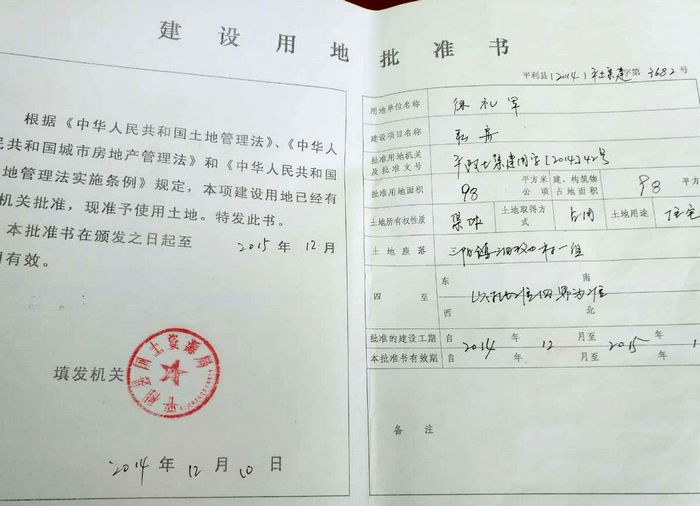 建设用地批准书
根据《中华人民共和国土地管理法》、《中华人
民共和国城市房地产管理法》和《中华人民共和国
地管理法实施条例》规定，本项建设用地已经有
机关批准，现准予使用土地。特发此书。
本批准书在颁发之日起至 2015 年 12 月
有效。
填发机关
平利县国土资源局
2014 年 12 月 10 日
平利县（2014）平土集建字第 3682 号
用地单位名称 徐礼军
建设项目名称
批准用地机关及批准文号 平政土集建用字[2014]42号
批准用地面积 98 平方米 公顷 建、构筑物占地面积 98 平方
土地所有权性质 集体 土地取得方式 占用 土地用途 住宅
土地座落 三阳镇 村一组
四至 东 南 西 北 以批准四界为准
批准的建设工期 自 2014 年 12 月至 2015 年 1
本批准书有效期 自 年 月至 年
备注